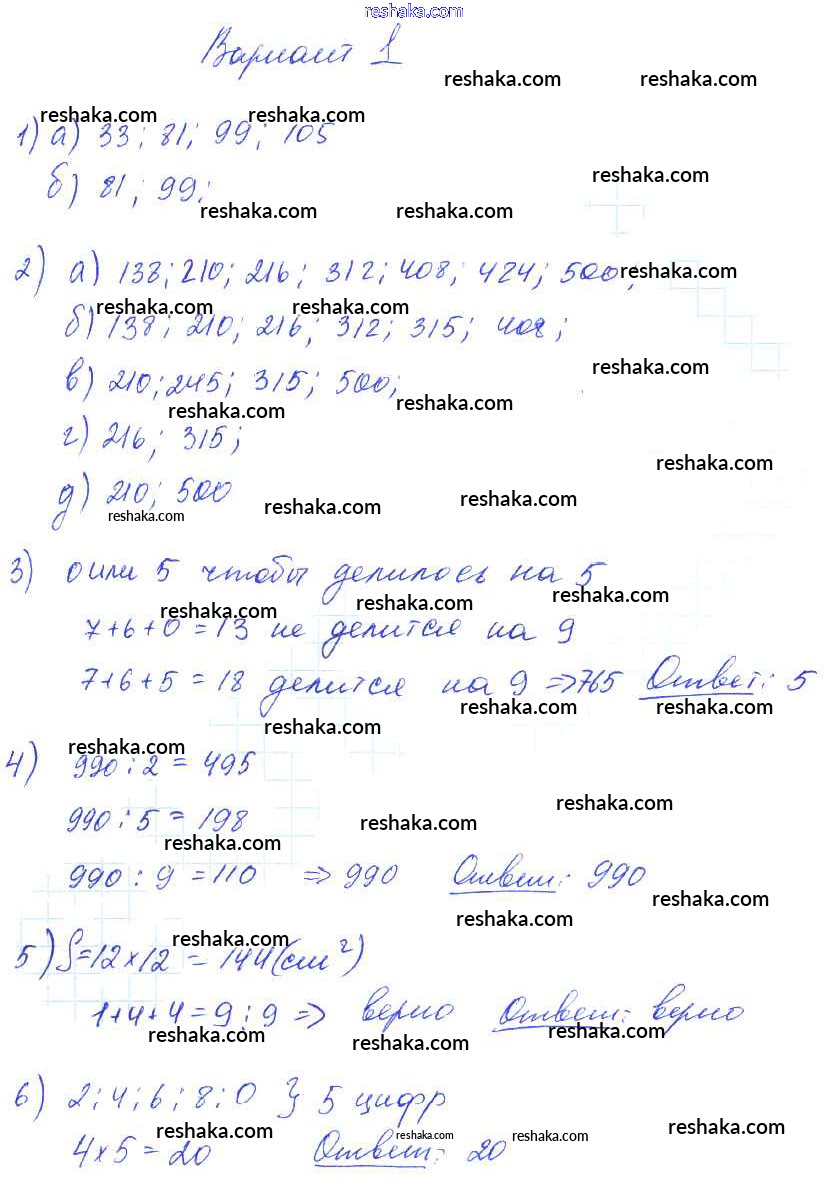 reshaka.com
Вариант 1
reshaka.com reshaka.com
reshaka.com reshaka.com
1) а) 33; 81; 99; 105
reshaka.com
б) 81; 99;
reshaka.com reshaka.com
2) а) 138; 210; 216; 312; 408; 424; 500;
reshaka.com
reshaka.com reshaka.com
б) 138; 210; 216; 312; 315; 408;
reshaka.com
в) 210; 245; 315; 500;
reshaka.com reshaka.com
г) 216; 315;
reshaka.com
д) 210; 500
reshaka.com reshaka.com reshaka.com
3) 0 или 5 чтобы делилось на 5
reshaka.com reshaka.com reshaka.com
7+6+0=13 не делится на 9
7+6+5=18 делится на 9 => 765 Ответ: 5
reshaka.com reshaka.com
reshaka.com
reshaka.com
4) 990:2=495
reshaka.com
990:5=198
reshaka.com
reshaka.com
990:9=110 => 990 Ответ: 990
reshaka.com
reshaka.com
reshaka.com
5) S=12×12=144(см²)
1+4+4=9:9 => верно Ответ: верно
reshaka.com reshaka.com reshaka.com
6) 2; 4; 6; 8; 0 } 5 цифр
reshaka.com reshaka.com reshaka.com reshaka.com
4×5=20 Ответ: 20